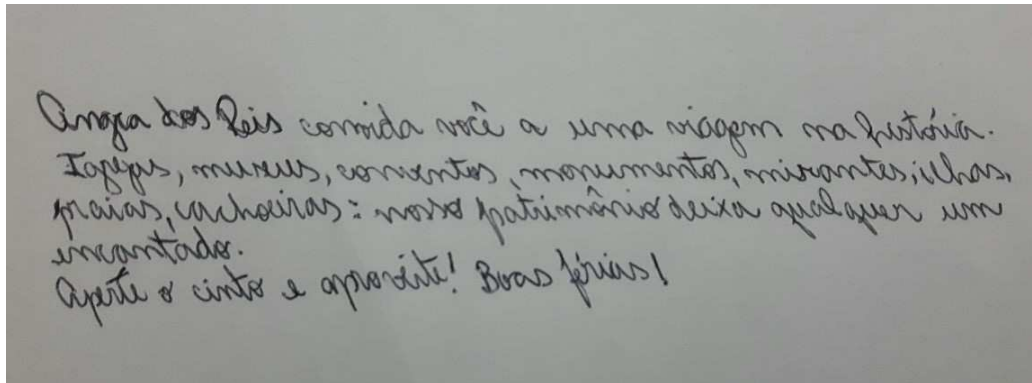 Angra dos Reis convida você a uma viagem na história.
Igrejas, museus, conventos, monumentos, mirantes, ilhas,
praias, cachoeiras: nosso patrimônio deixa qualquer um
encantado.
Aperte o cinto e aproveite! Boas férias!